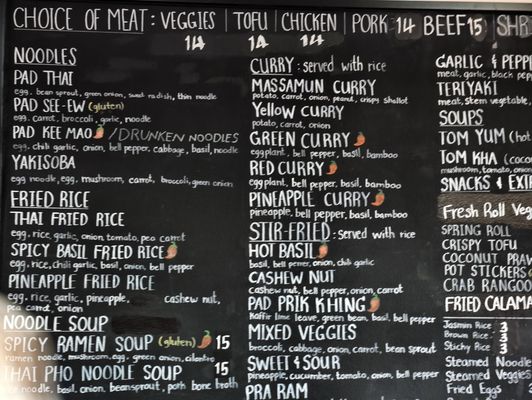 CHOICE OF MEAT: VEGGIES | TOFU | CHICKEN | PORK 14 BEEF 15 |
14 14 14
NOODLES
PAD THAI
egg, bean sprout, green onion, sweet radish, thin noodle
PAD SEE-EW (gluten)
egg, carrot, broccoli, garlic, noodle
PAD KEE MAO / DRUNKEN NOODLES
egg, chili garlic, onion, bell pepper, cabbage, basil, noodle
YAKISOBA
egg noodle, egg, mushroom, carrot, broccoli, green onion
FRIED RICE
THAI FRIED RICE
egg, rice, garlic, onion, tomato, pea carrot
SPICY BASIL FRIED RICE
egg, rice, chili garlic, basil, onion, bell pepper
PINEAPPLE FRIED RICE
egg, rice, garlic, pineapple, cashew nut,
pea carrot, onion
NOODLE SOUP
SPICY RAMEN SOUP (gluten) 15
ramen noodle, mushroom, egg, green onion, cilantro
THAI PHO NOODLE SOUP 15
noodle, basil, onion, beansprout, pork bone broth
CURRY: served with rice
MASSAMUN CURRY
potato, carrot, onion, peanut, crispy shallot
Yellow CURRY
potato, carrot, onion
GREEN CURRY
eggplant, bell pepper, basil, bamboo
RED CURRY
eggplant, bell pepper, basil, bamboo
PINEAPPLE CURRY
pineapple, bell pepper, basil, bamboo
STIR-FRIED: served with rice
HOT BASIL
basil, bell pepper, onion, chili garlic
CASHEW NUT
Cashew nut, bell pepper, onion, carrot
PAD PRIK KHING
Kaffir lime leave, green bean, basil, bell pepper
MIXED VEGGIES
broccoli, cabbage, onion, carrot, bean sprout
SWEET & SOUR
pineapple, cucumber, tomato, onion, bell pepper
PRA RAM
GARLIC &
meat, garlic, black
TERIYAKI
meat, stem vegetable
SOUPS
TOM YUM
TOM KHA
mushroom, tomato,
SNACKS &
Fresh Roll
SPRING ROLL
CRISPY TOFU
COCONUT
POT STICKERS
CRAB
FRIED
Jasmin Rice 3
Brown Rice 3
Sticky Rice 3
Steamed Noodle
Steamed Veggies
Fried Eggs